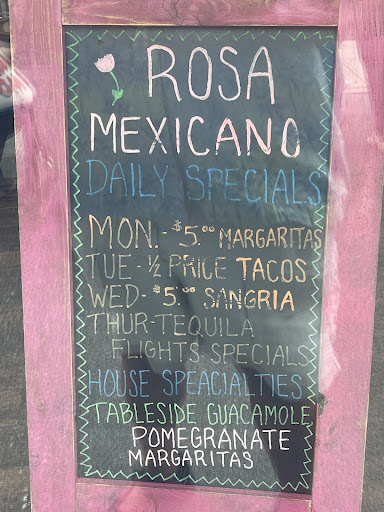 ROSA
MEXICANO
DAILY SPECIALS
MON.-$5.00 MARGARITAS
TUE-½ PRICE TACOS
WED-$5.00 SANGRIA
THUR-TEQUILA
FLIGHTS SPECIALS
HOUSE SPEACIALTIES
TABLESIDE GUACAMOLE
POMEGRANATE
MARGARITAS